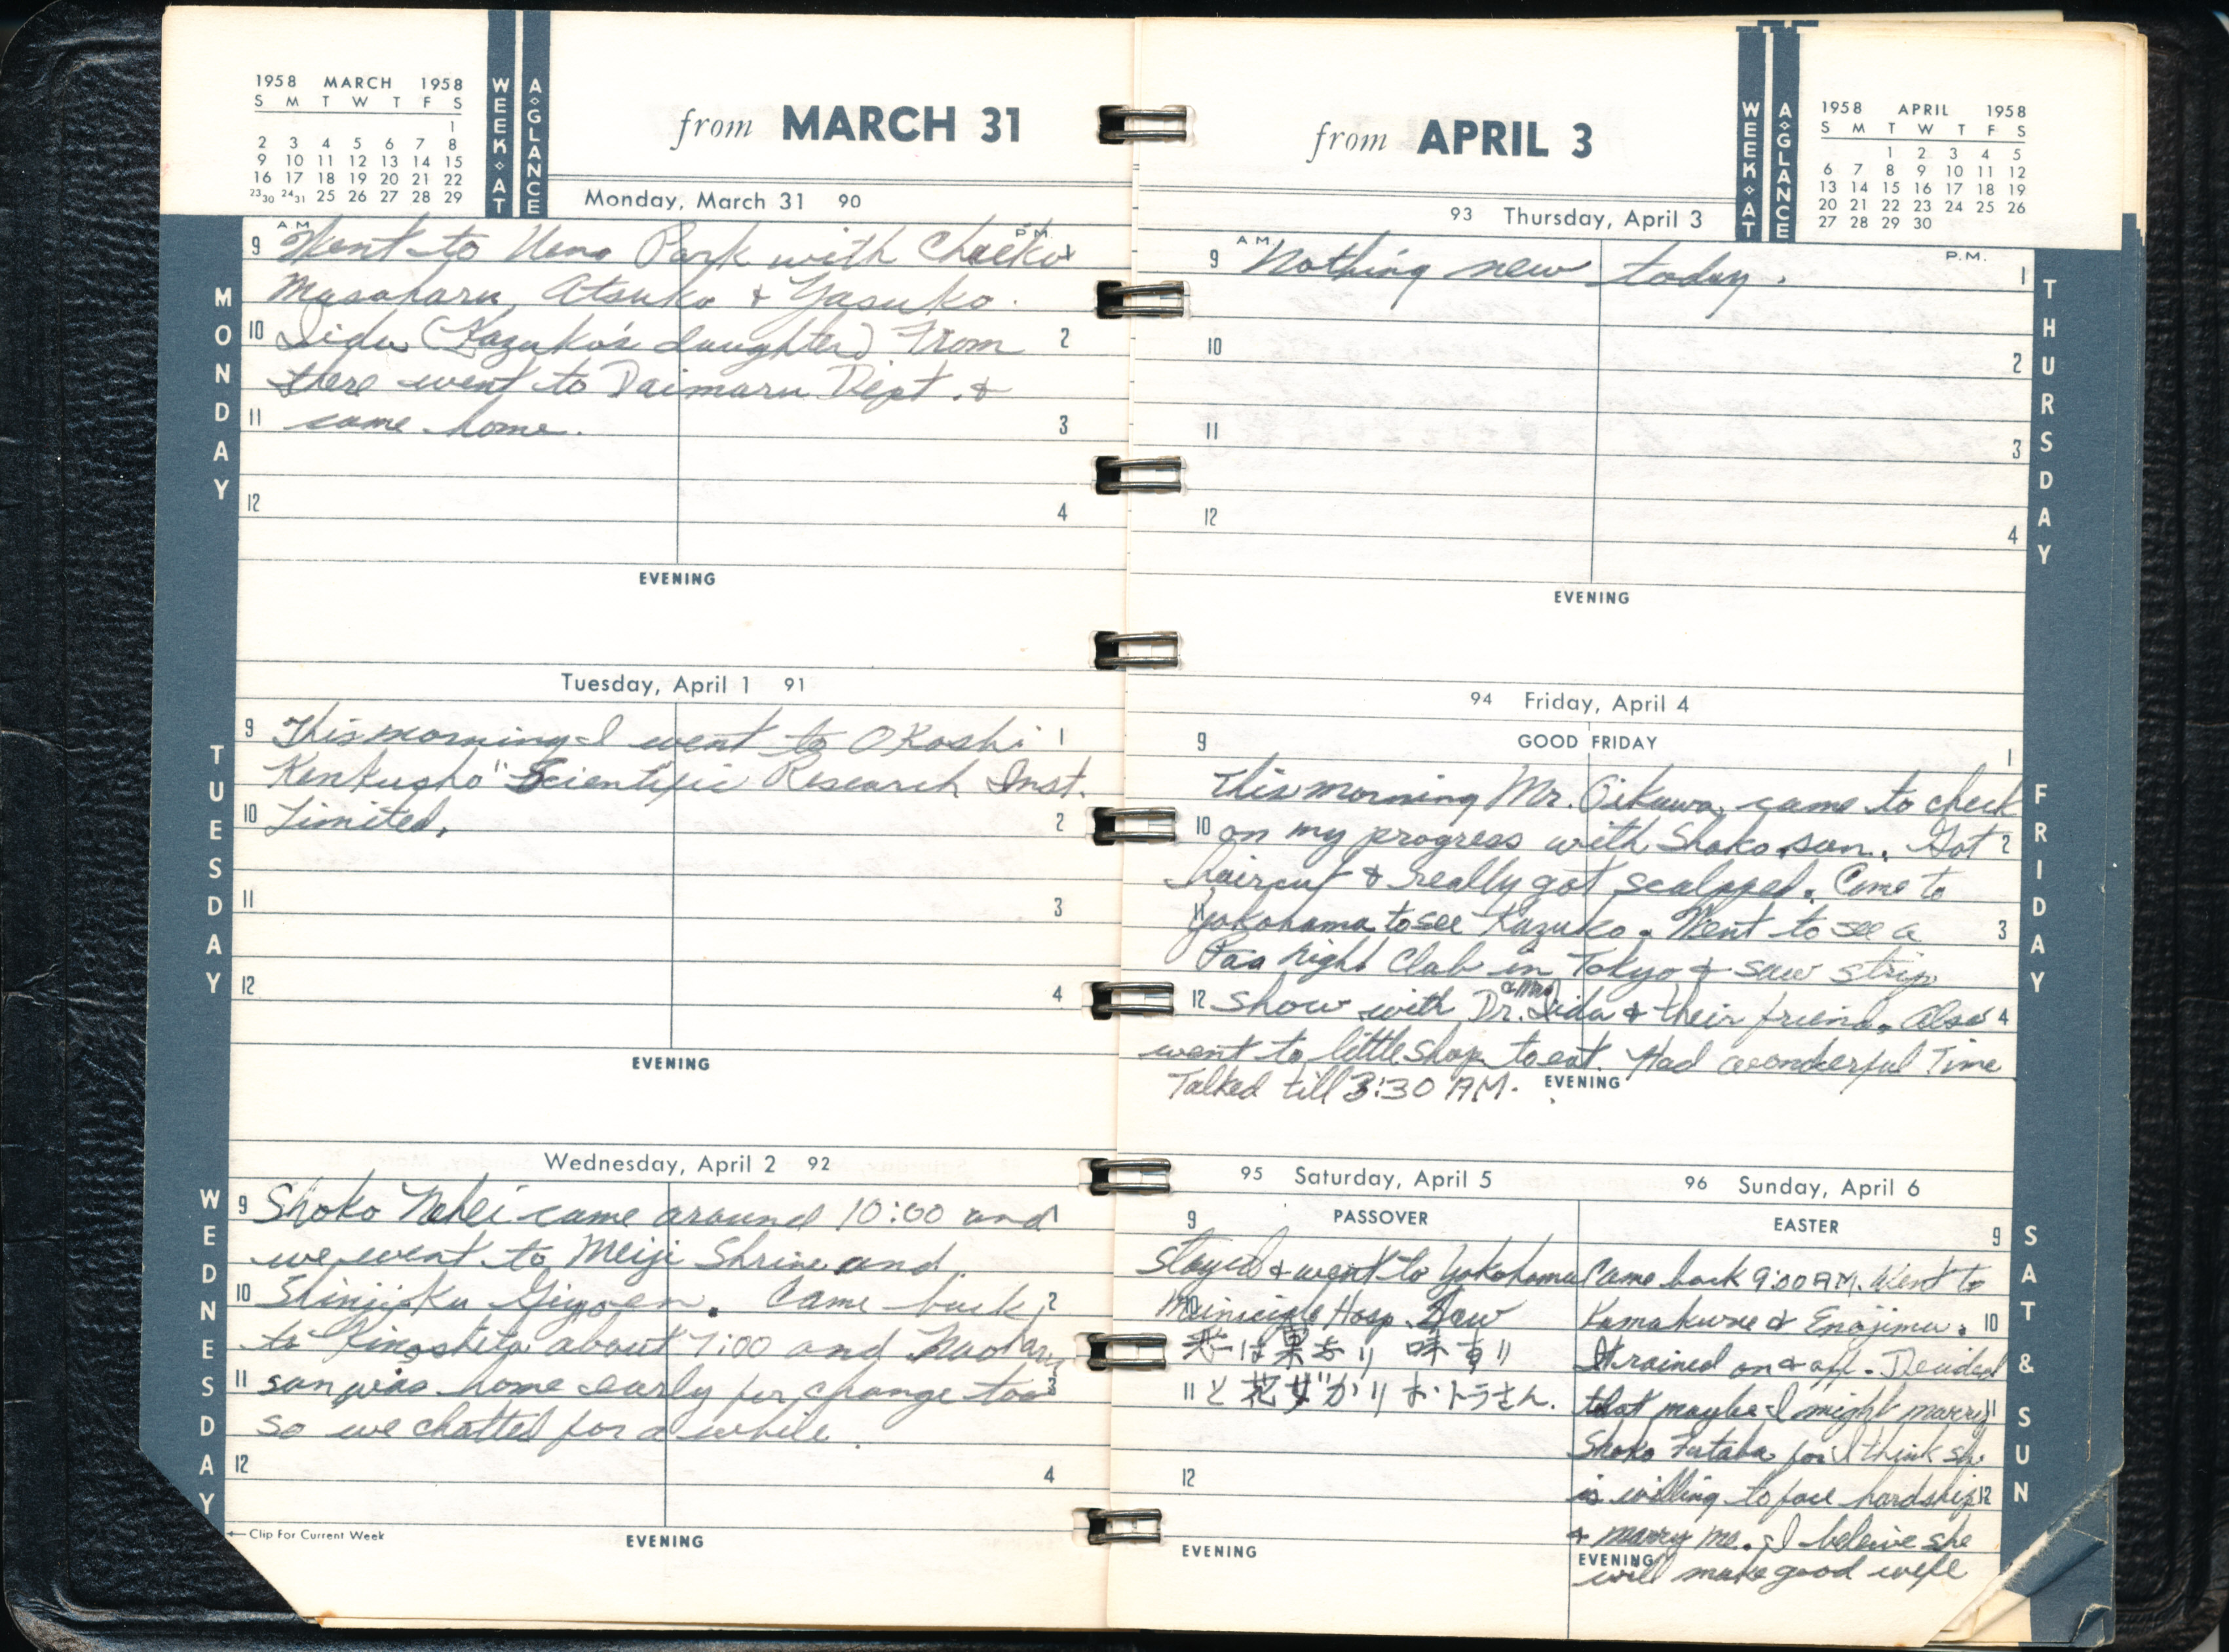 1958 MARCH 1958
S M T W T F S
1
2 3 4 5 6 7 8
9 10 11 12 13 14 15
16 17 18 19 20 21 22
23/30 24/31 25 26 27 28 29
WEEK AT A GLANCE
from MARCH 31
Monday, March 31 90
MONDAY
A.M. P.M.
9 1
Went to Ueno Park with Chieko
Masaharu, Atsuko & Yasuko
10 2
Iida (Kazuko's daughter) From
there went to Daimaru Dept. &
11 3
came home.
12 4
EVENING
Tuesday, April 1 91
TUESDAY
9 1
This morning I went to Okoshi
Kenkusho" Scientific Research Inst.
10 2
Limited.
11 3
12 4
EVENING
Wednesday, April 2 92
WEDNESDAY
9
Shoko Nehei came around 10:00 and
we went to Meiji Shrine and
10 2
Shinjuku Gigoen. Came back
to Kinoshita about 7:00 and Naoharu
11 3
san was home early for change too
so we chatted for a while.
12 4
←Clip For Current Week
EVENING
from APRIL 3
WEEK AT A GLANCE
1958 APRIL 1958
S M T W T F S
1 2 3 4 5
6 7 8 9 10 11 12
13 14 15 16 17 18 19
20 21 22 23 24 25 26
27 28 29 30
93 Thursday, April 3
THURSDAY
A.M. P.M.
9 1
Nothing new today.
10 2
11 3
12 4
EVENING
94 Friday, April 4
FRIDAY
GOOD FRIDAY
9 1
This morning Mr. Oikawa came to check
10 2
on my progress with Shoko san. Got
haircut & really got scalped. Came to
11 3
Yokohama to see Kazuko. Went to see a
night Club in Tokyo & saw strip
12 4
show with Dr. & Mrs Iida & their friend. Also
went to little shop to eat. Had wonderful Time
Talked till 3:30 AM.
EVENING
95 Saturday, April 5
PASSOVER
9
Stayed & went to Yokohama
10
Hosp. Saw
は果より味
と花 がり おトラさん.
12
EVENING
96 Sunday, April 6
EASTER
SAT & SUN
9
Came back 9:00 AM. Went to
Kamakura & Enojima. 10
It rained on & off. Decided
that maybe I might marry 11
Shoko Futaba for I think she
is willing to face hardship 12
& marry me. I beleive she
EVENING
will make good wife